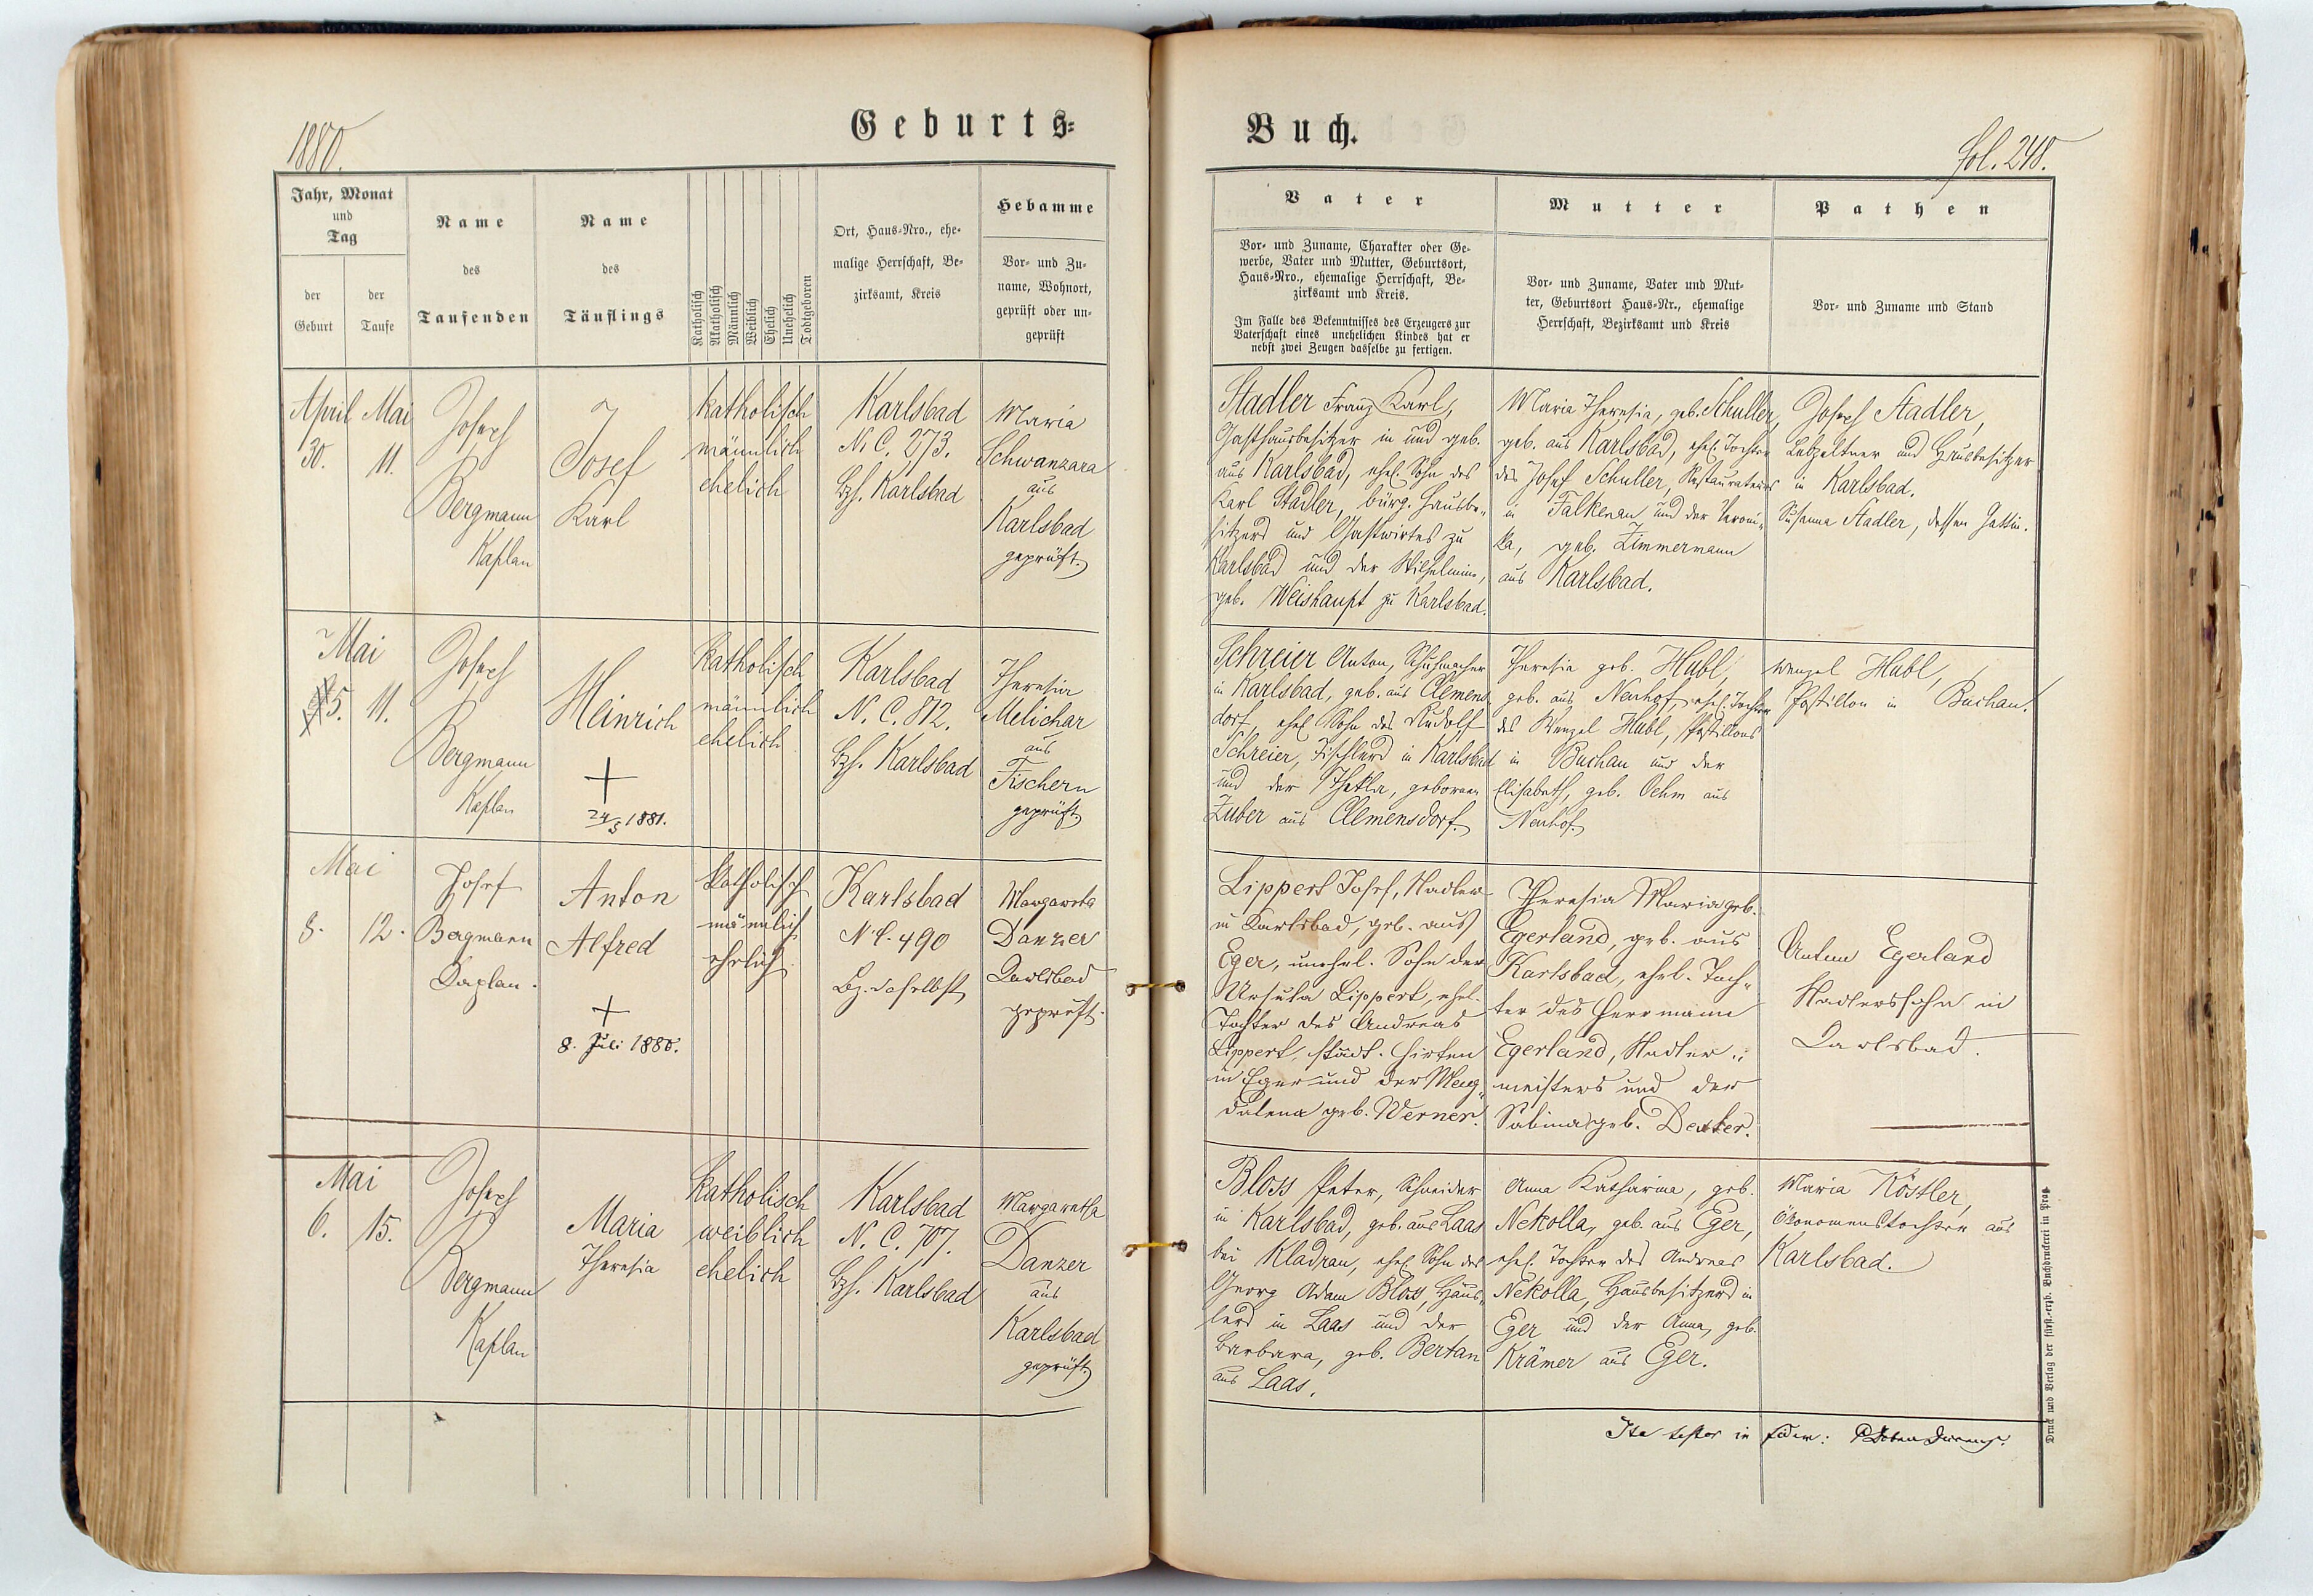 1880.
Geburts-
Jahr, Monat
und
Tag
der
Geburt
der
Taufe
Name
des
Taufenden
Name
des
Täuflings
Katholisch
Akatholisch
Männlich
Weiblich
Ehelich
Unehelich
Todtgeboren
Ort, Haus-Nro., ehe-
malige Herrschaft, Be-
zirksamt, Kreis
Hebamme
Vor- und Zu-
name, Wohnort,
geprüft oder un-
geprüft
April
30.
Mai
11.
Joseph
Bergmann
Kaplan
Josef
Karl
katholisch
männlich
ehelich
Karlsbad
N. C. 273.
Bzh. Karlsbad
Maria
Schwanzara
aus
Karlsbad
geprüft.
Mai
5.
11.
Joseph
Bergmann
Kaplan
Heinrich
+
24/3 1881.
katholisch
männlich
ehelich
Karlsbad
N. C. 812.
Bzh. Karlsbad
Theresia
Melichar
aus
Fischern
geprüft.
Mai
8.
12.
Josef
Bergmann
Kaplan.
Anton
Alfred
+
8. Juli 1880.
katholisch
männlich
ehelich
Karlsbad
N C. 490
Bz. daselbst
Margareta
Danzer
Karlsbad
geprüft.
Mai
6.
15.
Joseph
Bergmann
Kaplan
Maria
Theresia
katholisch
weiblich
ehelich
Karlsbad
N. C. 707.
Bzh. Karlsbad
Margaretha
Danzer
aus
Karlsbad
geprüft.
Buch.
Fol. 248.
Vater
Vor- und Zuname, Charakter oder Ge-
werbe, Vater und Mutter, Geburtsort,
Haus-Nro., ehemalige Herrschaft, Be-
zirksamt und Kreis.
Im Falle des Bekenntnisses des Erzeugers zur
Vaterschaft eines unehelichen Kindes hat er
nebst zwei Zeugen dasselbe zu fertigen.
Mutter
Vor- und Zuname, Vater und Mut-
ter, Geburtsort Haus-Nr., ehemalige
Herrschaft, Bezirksamt und Kreis
Pathen
Vor- und Zuname und Stand
Stadler Franz Karl,
Gasthausbesitzer in und geb.
aus Karlsbad, ehel. Sohn des
Karl Stadler, bürg. Hausbe-
sitzers und Gastwirtes zu
Karlsbad und der Wilhelmine,
geb. Weishaupt zu Karlsbad.
Maria Theresia, geb. Schuller,
geb. aus Karlsbad, ehel. Tochter
des Josef Schuller, Restaurateurs
in Falkenau und der Veroni-
ka, geb. Zimmermann
aus Karlsbad.
Joseph Stadler,
Lebzeltner und Hausbesitzer
in Karlsbad.
Susanna Stadler, dessen Gattin.
Schreier Anton, Schuhmacher
in Karlsbad, geb. aus Clemens-
dorf, ehel. Sohn des Rudolf
Schreier, Tischlers in Karlsbad
und der Thekla, geborene
Zuber aus Clemensdorf.
Theresia geb. Habl,
geb. aus Neuhof, ehel. Tochter
des Wenzel Habl, Postillons
in Buchau und der
Elisabeth, geb. Oehm aus
Neuhof.
Wenzel Habl,
Postillon in Buchau.
Lippert Josef, Nadler
in Karlsbad, geb. aus
Eger, unehel. Sohn der
Ursula Lippert, ehel.
Tochter des Andreas
Lippert, städt. Hirten
in Eger und der Mag-
dalena geb. Werner.
Theresia Maria geb.
Egerland, geb. aus
Karlsbad, ehel. Toch-
ter des Herrmann
Egerland, Nadler-
meisters und der
Sabina geb. Dexter.
Anton Egerland
Nadlerssohn in
Karlsbad.
Bloss Peter, Schneider
in Karlsbad, geb. aus Laas
bei Kladrau, ehel. Sohn des
Georg Adam Bloss, Häus-
lers in Laas und der
Barbara, geb. Bertan
aus Laas.
Anna Katharina, geb.
Nekolla, geb. aus Eger,
ehel. Tochter des Andreas
Nekolla, Hausbesitzers in
Eger und der Anna, geb.
Krämer aus Eger.
Maria Köstler,
Ökonomenstochter aus
Karlsbad.
Ita testor in fidem:
Druck und Verlag der fürst.-erzb. Buchdruckerei in Prag.